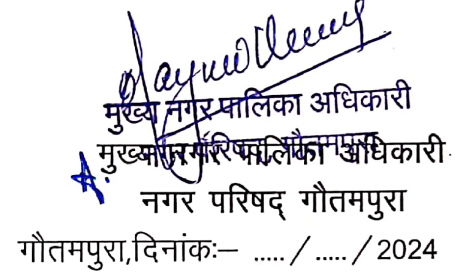 मुख्य नगर पालिका अधिकारी
मुख्य नगर पालिका अधिकारी
नगर परिषद् गौतमपुरा
गौतमपुरा,दिनांकः– ..... / ..... / 2024